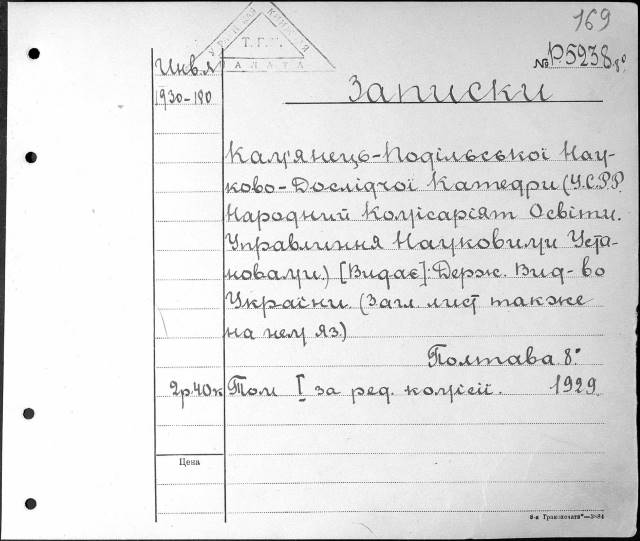 169
Т.Г.К.
ПАЛАТА
№ Р5238 8°
Инв. А
1930-180
Записки
Кам'янець-Подільської Нау-
ково-Дослідчої Катедри (У.С.Р.Р.
Народний Комісаріят Освіти.
Управління Науковими Уста-
новами.) [Видає]: Держ. Вид-во
України. (Загл лист также
на нем яз.)
Полтава 8°.
2р.40к Том I за ред. комісії. 1929.
Цена